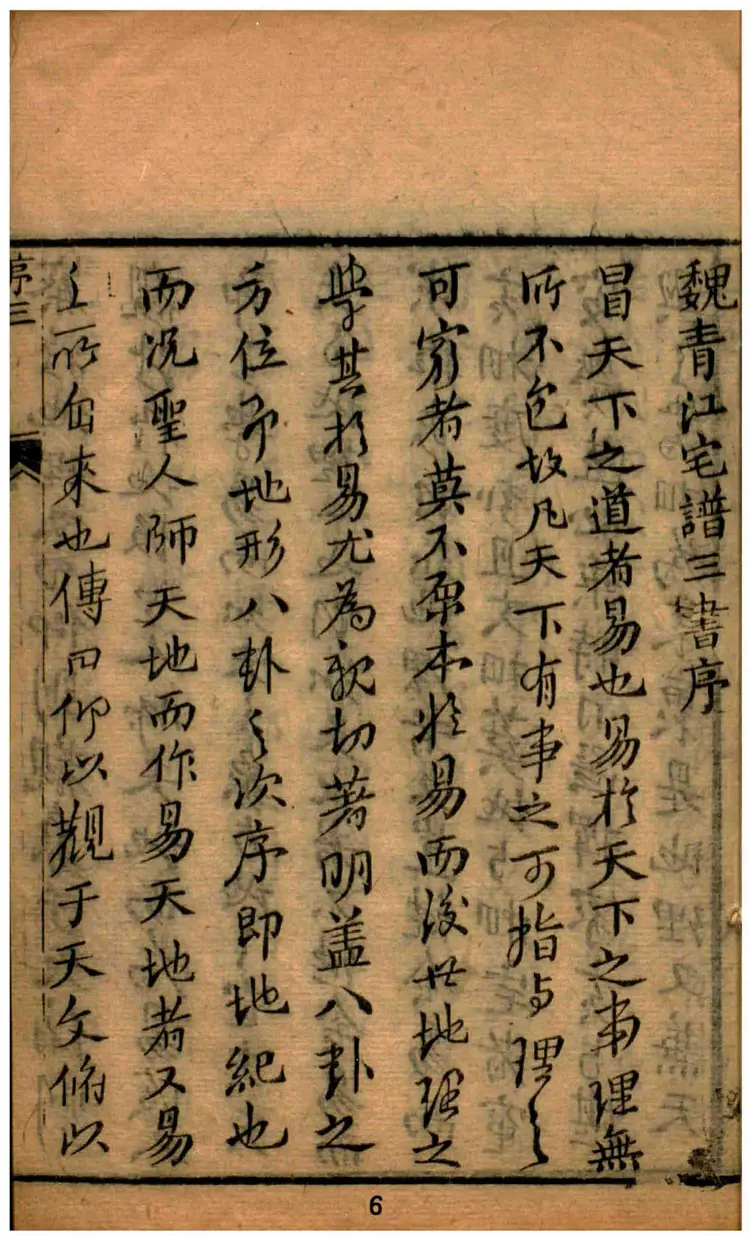 魏青江宅譜三書序
冒天下之道者易也易於天下之事理無
所不包故凡天下有事之可指与理之
可窮者莫不原本於易而後世地理之
學其於易尤為親切著明蓋八卦之
方位即地形八卦之次序即地紀也
而況聖人師天地而作易天地者又易
之所自來也傳曰仰以觀于天文俯以
序三
6